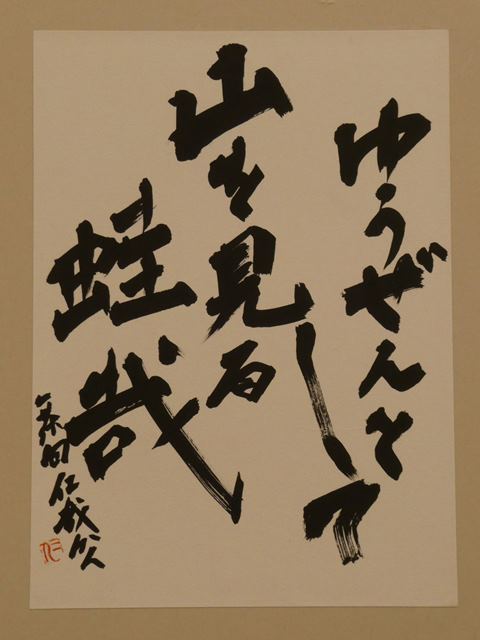 ゆうぜんと
して
山を見る
蛙哉
一茶句